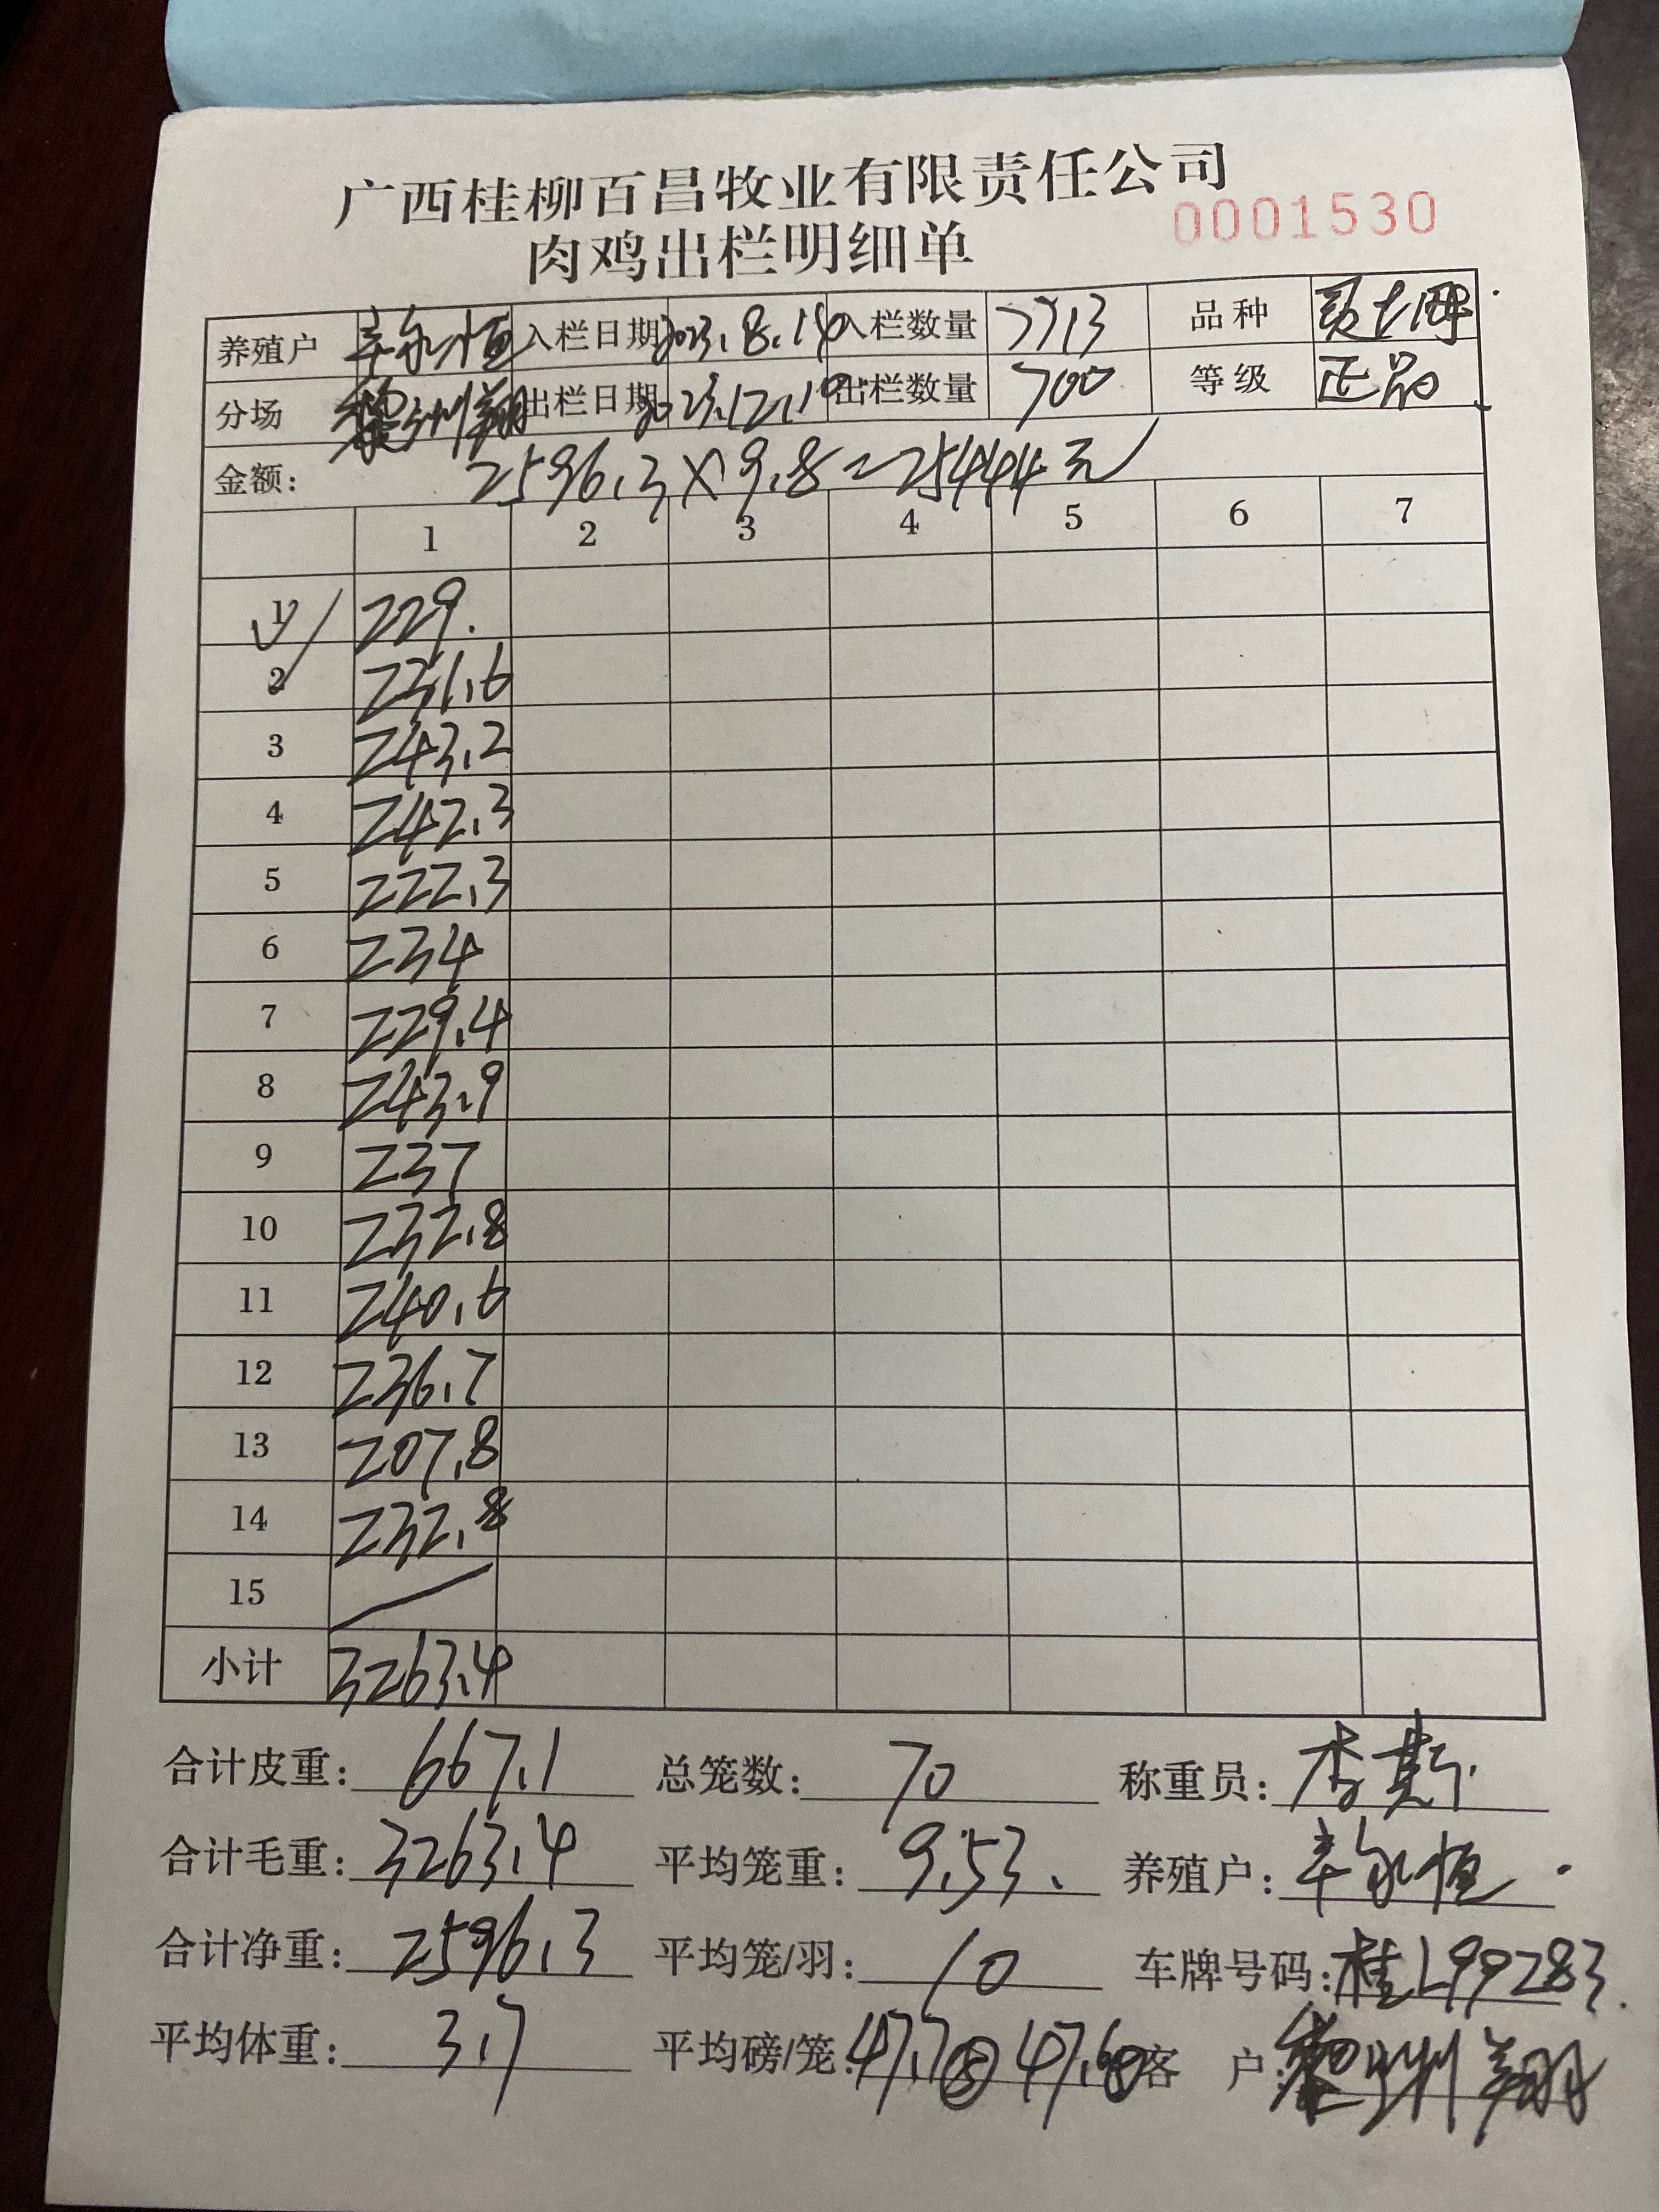 广西桂柳百昌牧业有限责任公司
肉鸡出栏明细单 0001530
养殖户 入栏日期 2023.8.1 入栏数量 7713 品种
分场 黎洲翔 出栏日期 2023.12.1 出栏数量 700 等级 正品
金额: 2596.3×9.8=25444元
1 2 3 4 5 6 7
1 229.
2 231.6
3 243.2
4 242.3
5 222.3
6 234
7 229.4
8 243.9
9 237
10 232.8
11 240.6
12 236.7
13 207.8
14 232.8
15
小计 3263.4
合计皮重: 667.1 总笼数: 70 称重员: 李斯
合计毛重: 3263.4 平均笼重: 9.53 养殖户:
合计净重: 2596.3 平均笼/羽: 10 车牌号码: 桂L99283
平均体重: 3.7 平均磅/笼: 47.7 47.6 客 户: 黎洲翔